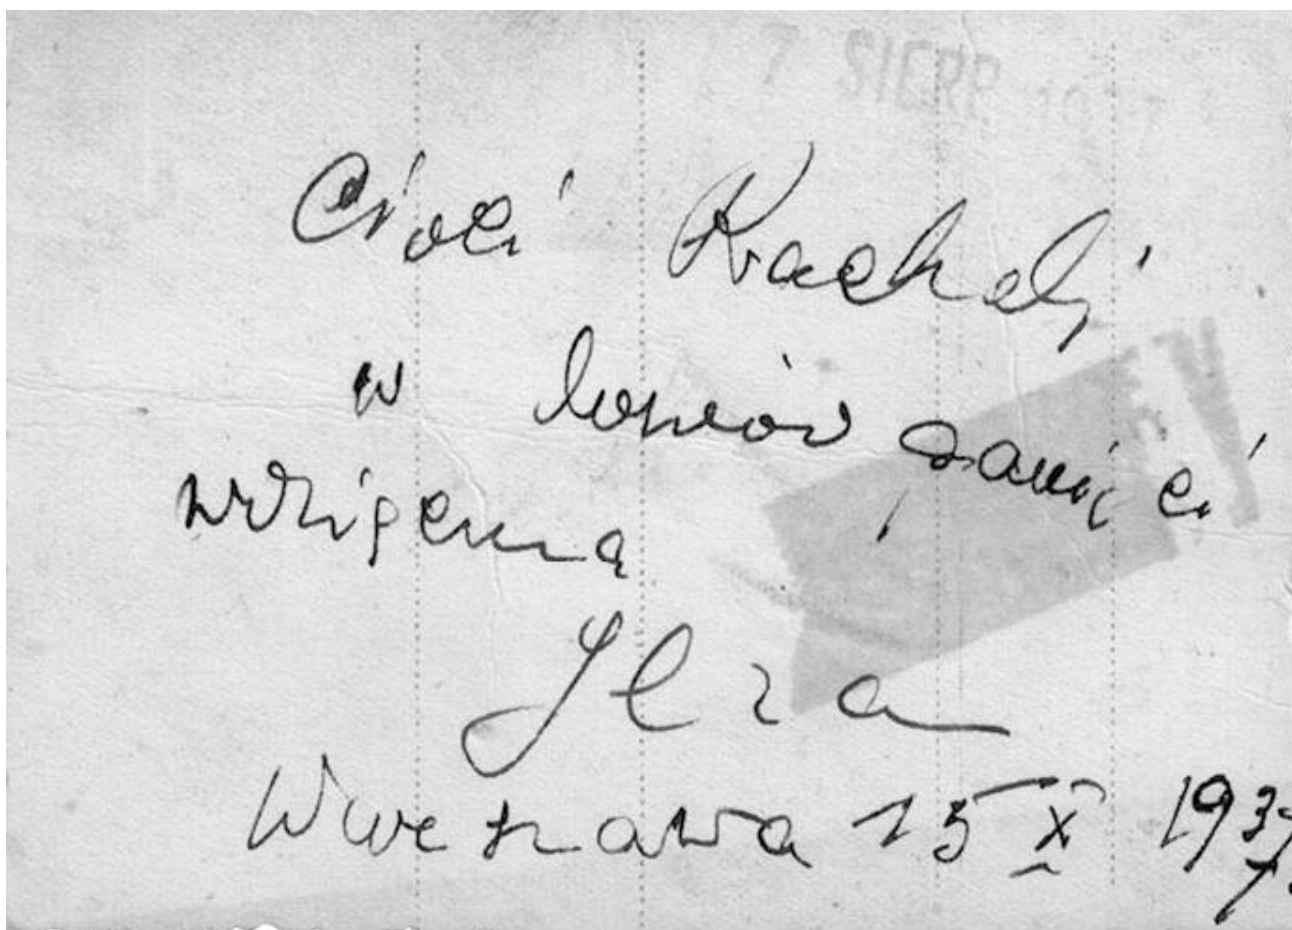 7 SIERP. 1937
Cioci Racheli
w dowód pamięci
wdzięczna
Ilza
Warszawa 15 X 1937 r.